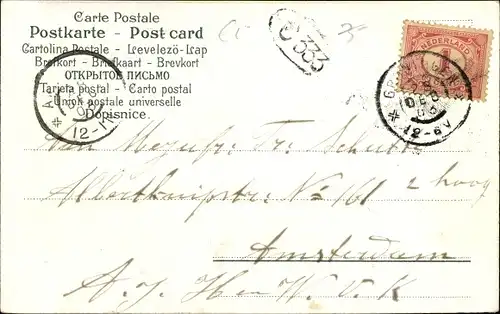 Carte Postale
Postkarte - Post card
Cartolina Postale - Levelező-Lap
Brefkort - Briefkaart - Brevkort
ОТКРЫТОЕ ПИСЬМО
Tarjeta postal - Carto postal
Union postale universelle
Dopisnice.
333
NEDERLAND
1
DEC
12-1
DEC
12-6V
Aan Mejufr: Tr: Schutte
Albert Cuijpstr: No 161 2 hoog
Amsterdam
A. J. H W. V. K